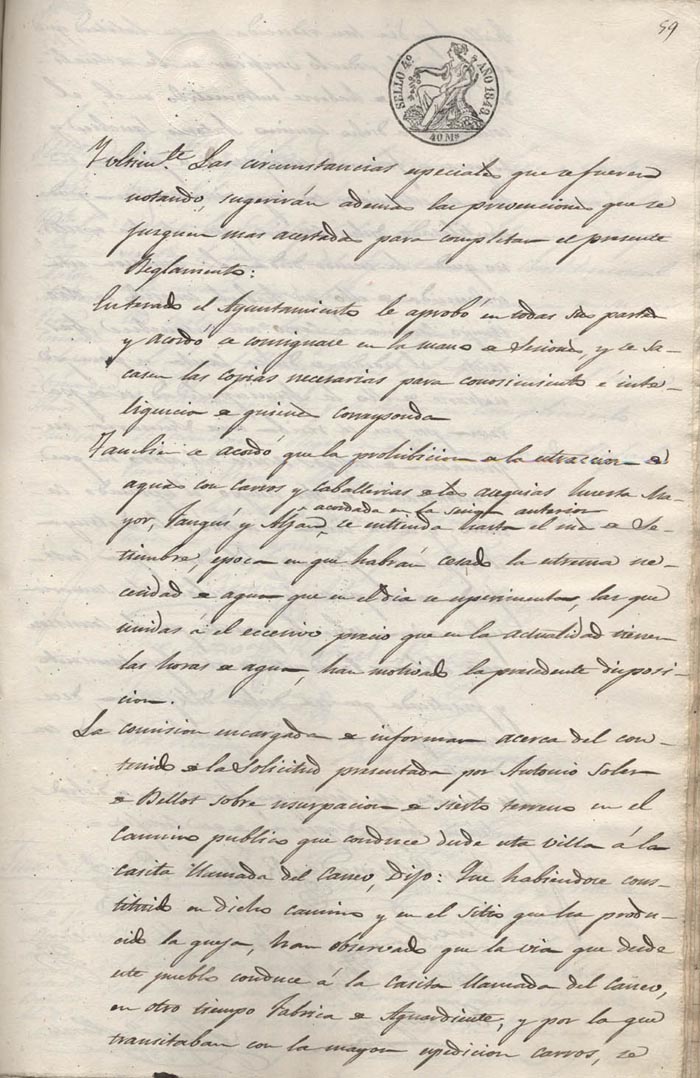 59
SELLO 4º AÑO 1849.
40 Ms
Las circunstancias especiales que se fueren
notando, sugerirán ademas las prevenciones que se
juzguen mas acertadas para completar el presente
Reglamento:
Enterado el Ayuntamiento le aprobó en todas sus partes
y acordó se consignase en la mano de Sesiones, y se sa-
casen las copias necesarias para conocimiento é inte-
ligencia de quienes corresponda
Tambien se acordó que la prohibicion de la estraccion de
aguas con carros y caballerias de las acequias huerta Ma-
acordada en la anterior
yor, Fauquí y se entienda hasta el mes de Se-
tiembre, epoca en que habrán cesado la estrema ne-
cesidad de agua que en el dia se esperimenta, las que
unidas á el eccesivo precio que en la actualidad tienen
las horas de agua, han motivado la precedente disposi-
cion.
La comision encargada de informar acerca del con-
tenido de la Solicitud presentada por Antonio Soler
de Bellot sobre usurpacion de sierto terreno en el
camino publico que conduce desde esta villa á la
casita llamada del Carreo, Dijo: Que habiendose cons-
tituido en dicho camino y en el sitio que ha produ-
cido la queja, han observado que la via que desde
este pueblo conduce á la casita llamada del Carreo,
en otro tiempo Fabrica de Aguardiente, y por la que
transitaban con la mayor espedicion carros, se